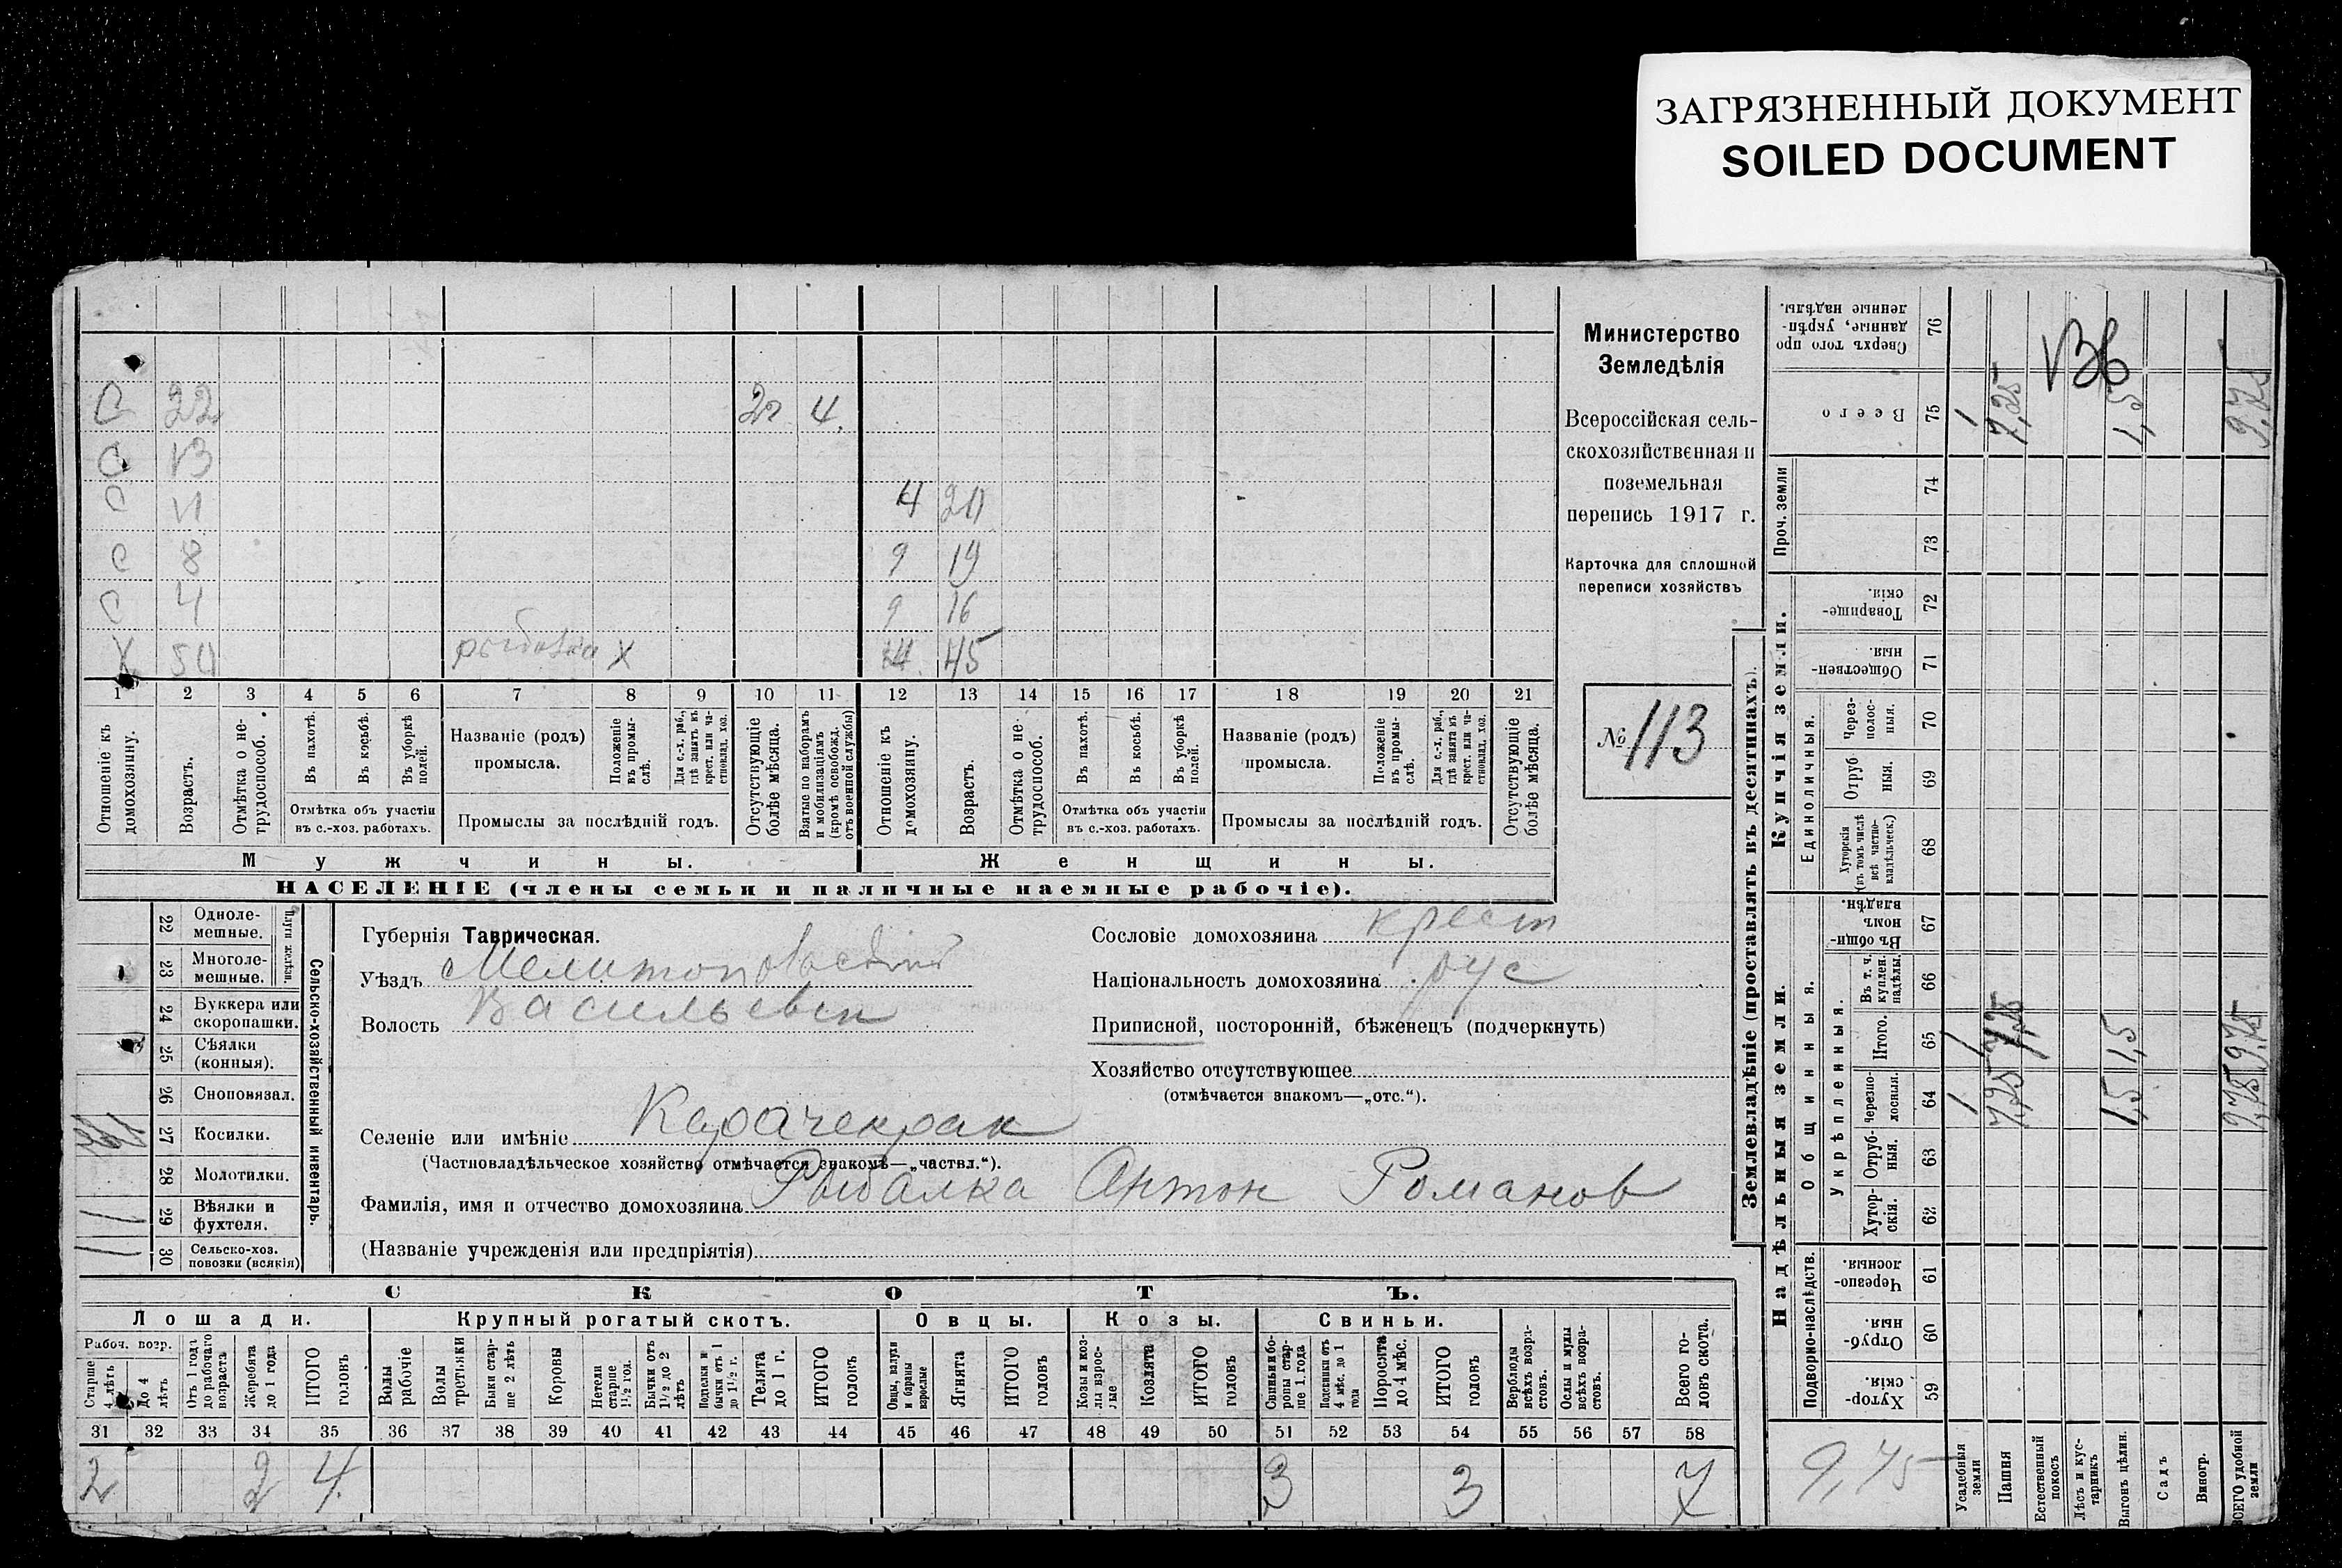 ЗАГРЯЗНЕННЫЙ ДОКУМЕНТ
SOILED DOCUMENT
С 22 22 4
С 13
С 11 4 20
С 8 9 19
С 4 9 16
Х 50 рыбалка х 14 45
1 2 3 4 5 6 7 8 9 10 11 12 13 14 15 16 17 18 19 20 21
Отношеніе къ домохозяину.
Возрастъ.
Отмѣтка о нетрудоспособ.
Въ пахотѣ.
Въ косьбѣ.
Въ уборкѣ полей.
Отмѣтка объ участіи въ с.-хоз. работахъ.
Названіе (родъ) промысла.
Положеніе въ промыслѣ.
Для с.-х. раб., гдѣ занятъ въ крест. или частновлад. хоз.
Промыслы за послѣдній годъ.
Отсутствующіе болѣе мѣсяца.
Взятые по наборамъ и мобилизаціямъ (кромѣ освобожд. отъ военной службы)
Отношеніе къ домохозяину.
Возрастъ.
Отмѣтка о нетрудоспособ.
Въ пахотѣ.
Въ косьбѣ.
Въ уборкѣ полей.
Отмѣтка объ участіи въ с.-хоз. работахъ.
Названіе (родъ) промысла.
Положеніе въ промыслѣ.
Для с.-х. раб., гдѣ занята въ крест. или частновлад. хоз.
Промыслы за послѣдній годъ.
Отсутствующіе болѣе мѣсяца.
Мужчины. Женщины.
НАСЕЛЕНІЕ (члены семьи и наличные наемные рабочіе).
Министерство
Земледѣлія
Всероссійская сель-
скохозяйственная и
поземельная
перепись 1917 г.
Карточка для сплошной
переписи хозяйствъ
№ 113
Плуги желѣзн.
22 Одноле-
мешные.
23 Многоле-
мешные.
1
24 Буккера или
скоропашки.
25 Сѣялки
(конныя).
26 Сноповязал.
27 Косилки.
28 Молотилки.
29 Вѣялки и
фухтеля.
1
30 Сельско-хоз.
повозки (всякія)
1
Сельско-хозяйственный инвентарь.
Губернія Таврическая.
Уѣздъ Мелитопольскій
Волость Васильевск
Селеніе или имѣніе Карачекрак
(Частновладѣльческое хозяйство отмѣчается знакомъ—„частвл.“).
Фамилія, имя и отчество домохозяина Рыбалка Антон Романов
(Названіе учрежденія или предпріятія)
Сословіе домохозяина крест
Національность домохозяина рус
Приписной, посторонній, бѣженецъ (подчеркнуть)
Хозяйство отсутствующее
(отмѣчается знакомъ—„отс.“).
СКОТЪ.
Лошади. Крупный рогатый скотъ. Овцы. Козы. Свиньи.
Рабоч. возр.
Старше 4 лѣтъ
До 4 лѣтъ
Отъ 1 года до рабочаго возраста
Жеребята до 1 года
ИТОГО головъ
Волы рабочіе
Волы третьяки
Быки старше 2 лѣтъ
Коровы
Нетели старше 1½ год.
Бычки отъ 1½ до 2 лѣтъ
Подтелки и бычки отъ 1 до 1½ г.
Телята до 1 г.
ИТОГО головъ
Овцы, валухи и бараны взрослые
Ягнята
ИТОГО головъ
Козы и козлы взрослые
Козлята
ИТОГО головъ
Свиньи и боровы старше 1 года
Подсвинки отъ 4 мѣс. до 1 года
Поросята до 4 мѣс.
ИТОГО головъ
Верблюды всѣхъ возрастовъ.
Ослы и мулы всѣхъ возрастовъ.
Всего головъ скота.
31 32 33 34 35 36 37 38 39 40 41 42 43 44 45 46 47 48 49 50 51 52 53 54 55 56 57 58
2 2 4 3 3 7
Землевладѣніе (проставлять въ десятинахъ).
Купчія земли.
Надѣльныя земли.
Сверхъ того проданные, укрѣпленные надѣлы. 76
Всего 75 1 7,25 1,5 9,75
Проч. земли
74
73
Товарищескія. 72
Общественныя. 71
Единоличныя.
Черезполосныя. 70
Отрубныя. 69
Хуторскія (въ томъ числѣ всѣ частновладѣльческ.) 68
Общинныя.
Въ общинномъ владѣн. 67
Укрѣпленныя.
Въ т. ч. куплен. надѣлы. 66
Итого. 65 1 7,25 1,5 9,75
Черезполосныя. 64 1 7,25 1,5 9,75
Отрубныя. 63
Хуторскія. 62
Подворно-наслѣдств.
Черезполосныя. 61
Отрубныя. 60
Хуторскія. 59
9,75
Усадебныя земли
Пашня
Естественный покосъ
Лѣсъ и кустарникъ
Выгонъ цѣлин.
Садъ
Виногр.
ВСЕГО удобной земли